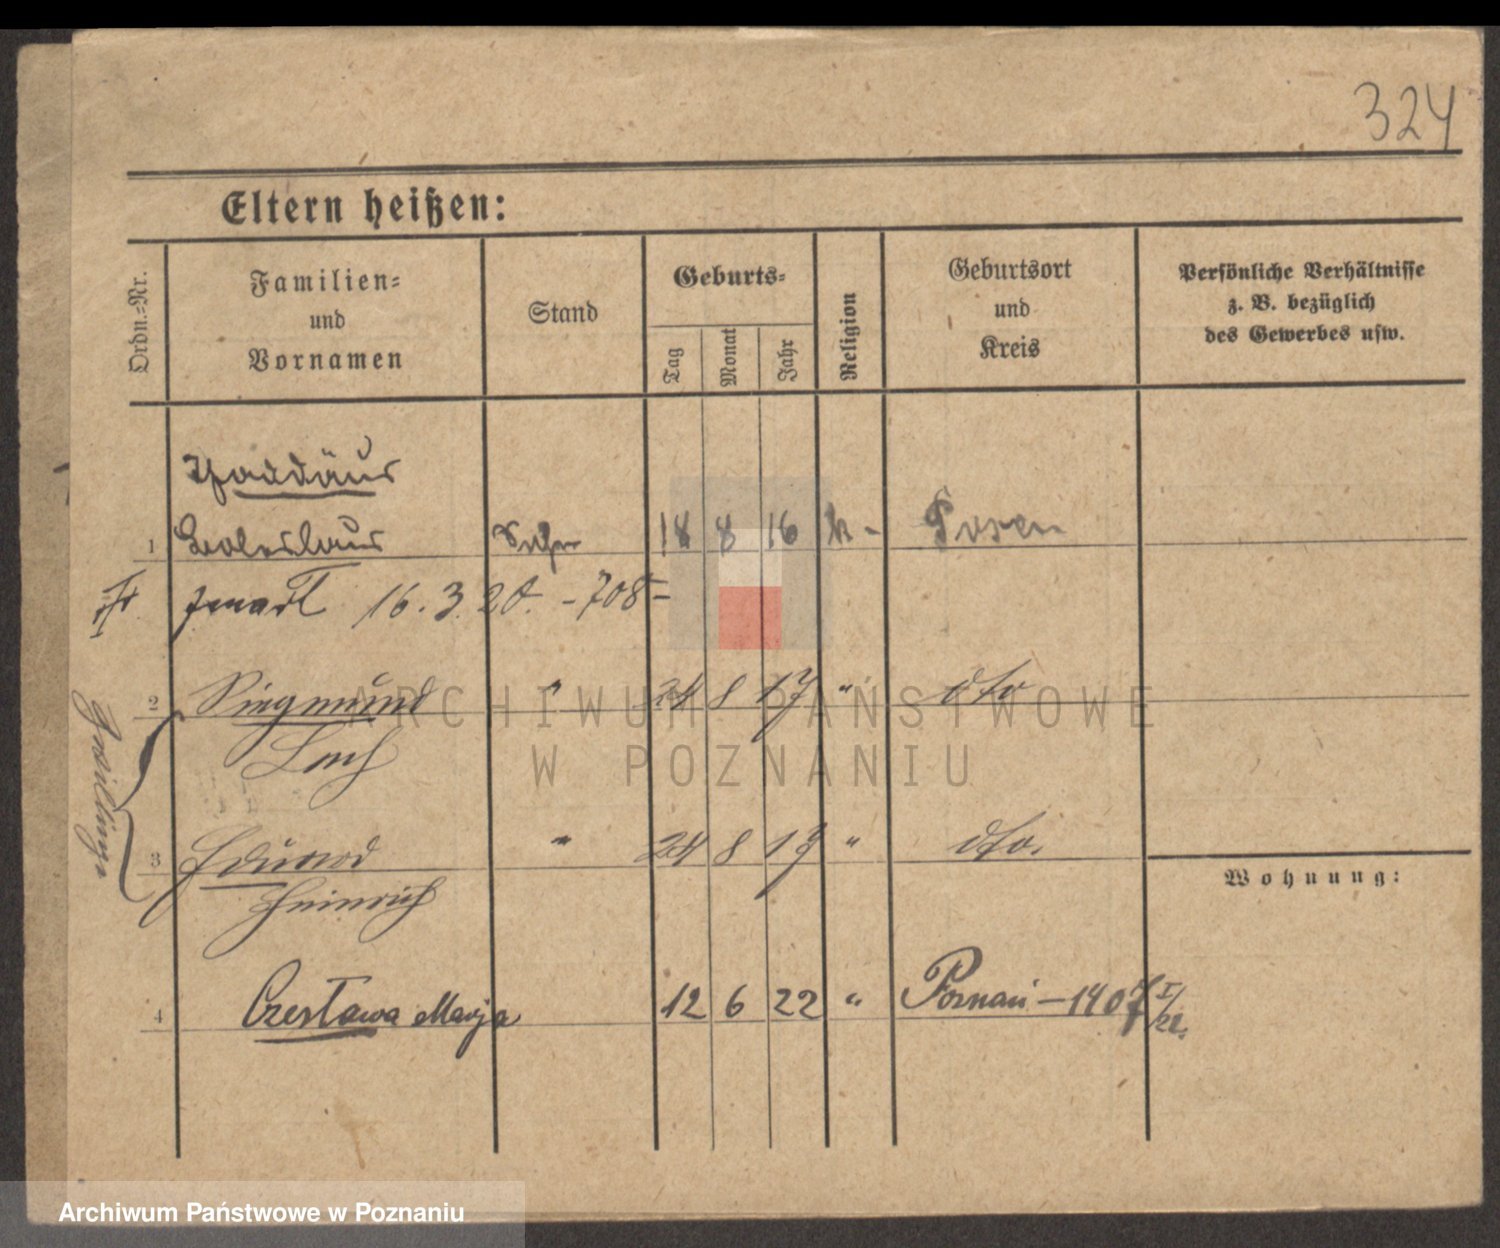 324
Eltern heißen:
Ordn.-Nr.
Familien-
und
Vornamen
Stand
Geburts-
Tag
Monat
Jahr
Religion
Geburtsort
und
Kreis
Persönliche Verhältnisse
z. B. bezüglich
des Gewerbes usw.
Thaddäus
1 Boleslaus Sohn 18 8 16 k - Posen
16. 3. 20. - 708 -
2 Siegmund " 24 8 17 " dto
Lech
Zwillinge
3 Eduard " 24 8 17 " dto.
Heinrich
Wohnung:
4 Czesława Marja 12 6 22 " Poznań - 1407 I/22.
ARCHIWUM PAŃSTWOWE
W POZNANIU
Archiwum Państwowe w Poznaniu